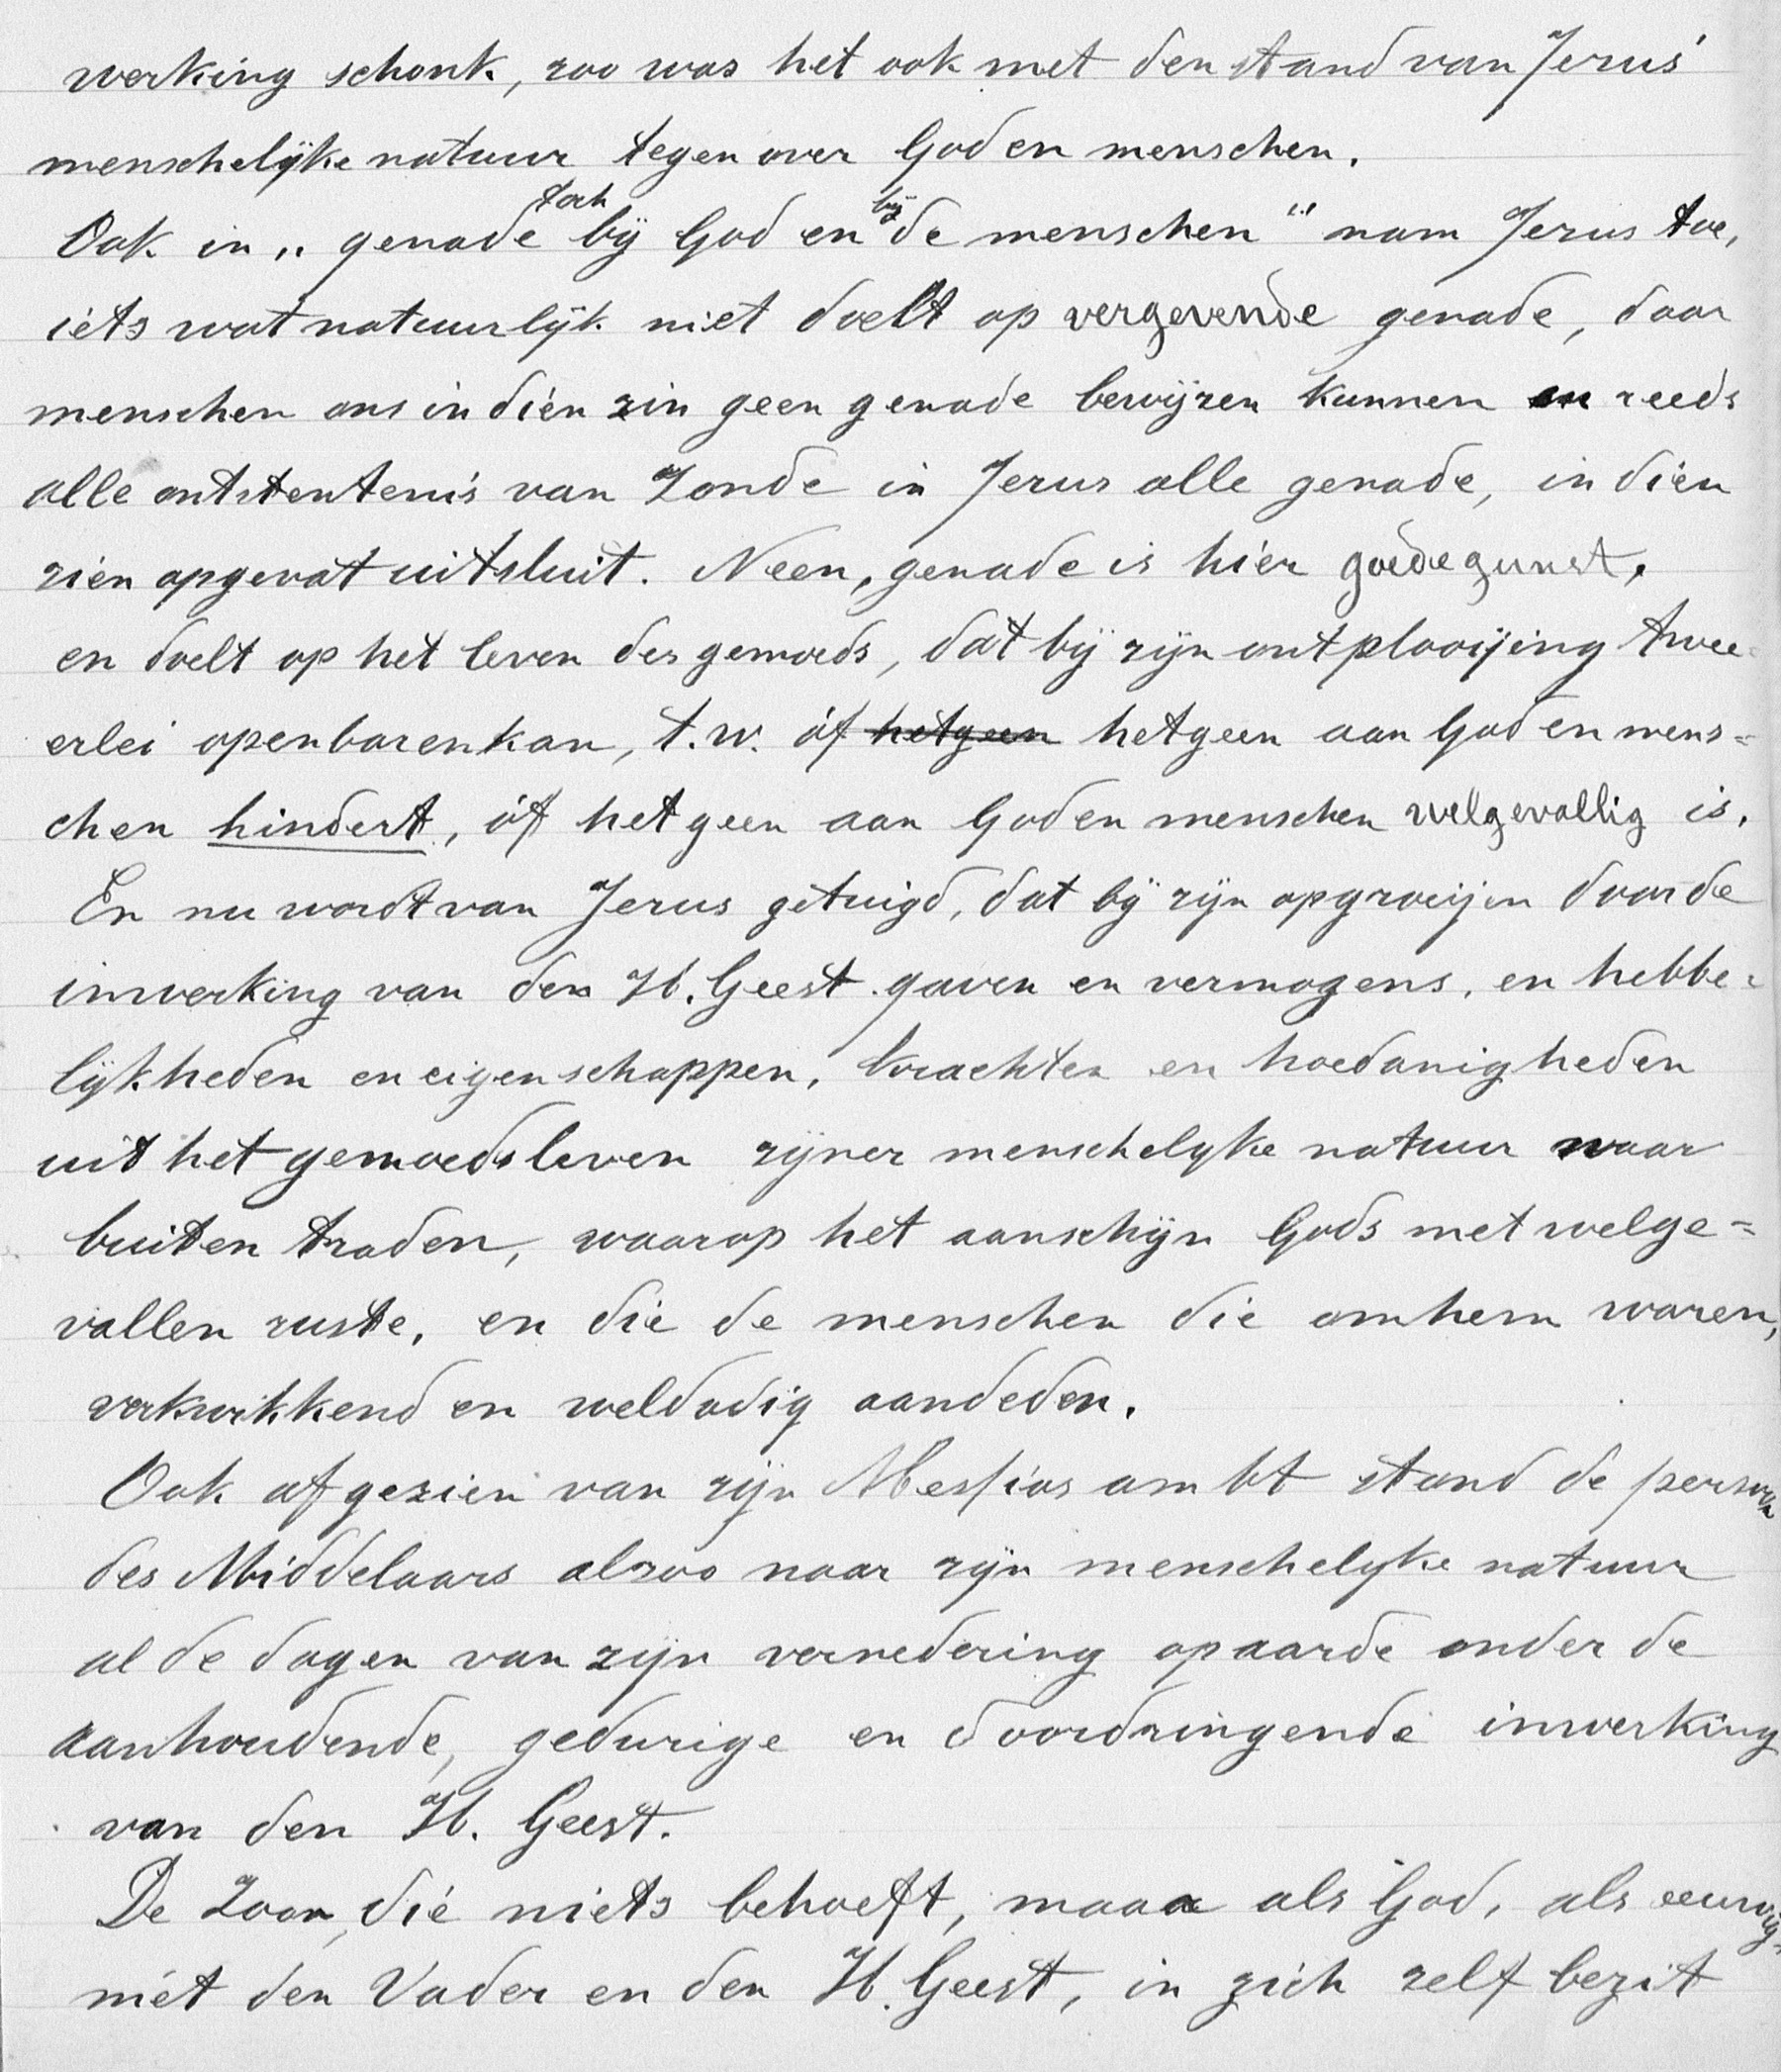 werking schonk, zoo was het ook met den stand van Jezus'
menschelijke natuur tegenover God en menschen.
Ook in „genade toch bij God en bij de menschen" nam Jezus toe,
iets wat natuurlijk niet doelt op vergevende genade, daar
menschen ons in dien zin geen genade bewijzen kunnen en reeds
alle ontstentenis van Zonde in Jezus alle genade, in dien
zien opgevat uitsluit. Neen, genade is hier goede gunst,
en doelt op het leven des gemoeds, dat bij zijn ontplooijing twee-
erlei openbaren kan, t.w. óf hetgeen hetgeen aan God en mens=
chen hindert, óf hetgeen aan God en menschen welgevallig is.
En nu wordt van Jezus getuigd, dat bij zijn opgroeijen door de
inwerking van den H. Geest gaven en vermogens, en hebbe=
lijkheden en eigenschappen, krachten en hoedanigheden
uit het gemoedsleven zijner menschelyke natuur naar
buiten traden, waarop het aanschijn Gods met welge=
vallen ruste, en die de menschen die om hem waren,
verkwikkend en weldadig aandeden.
Ook afgezien van zijn Messias ambt stond de persoon
des Middelaars alzoo naar zijn menschelyke natuur
al de dagen van zijn vernedering op aarde onder de
aanhoudende, gedurige en doordringende inwerking
van den H. Geest.
De Zoon, die niets behoeft, maar als God, als eeuwig,
mét den Vader en den H. Geest, in zich zelf bezit